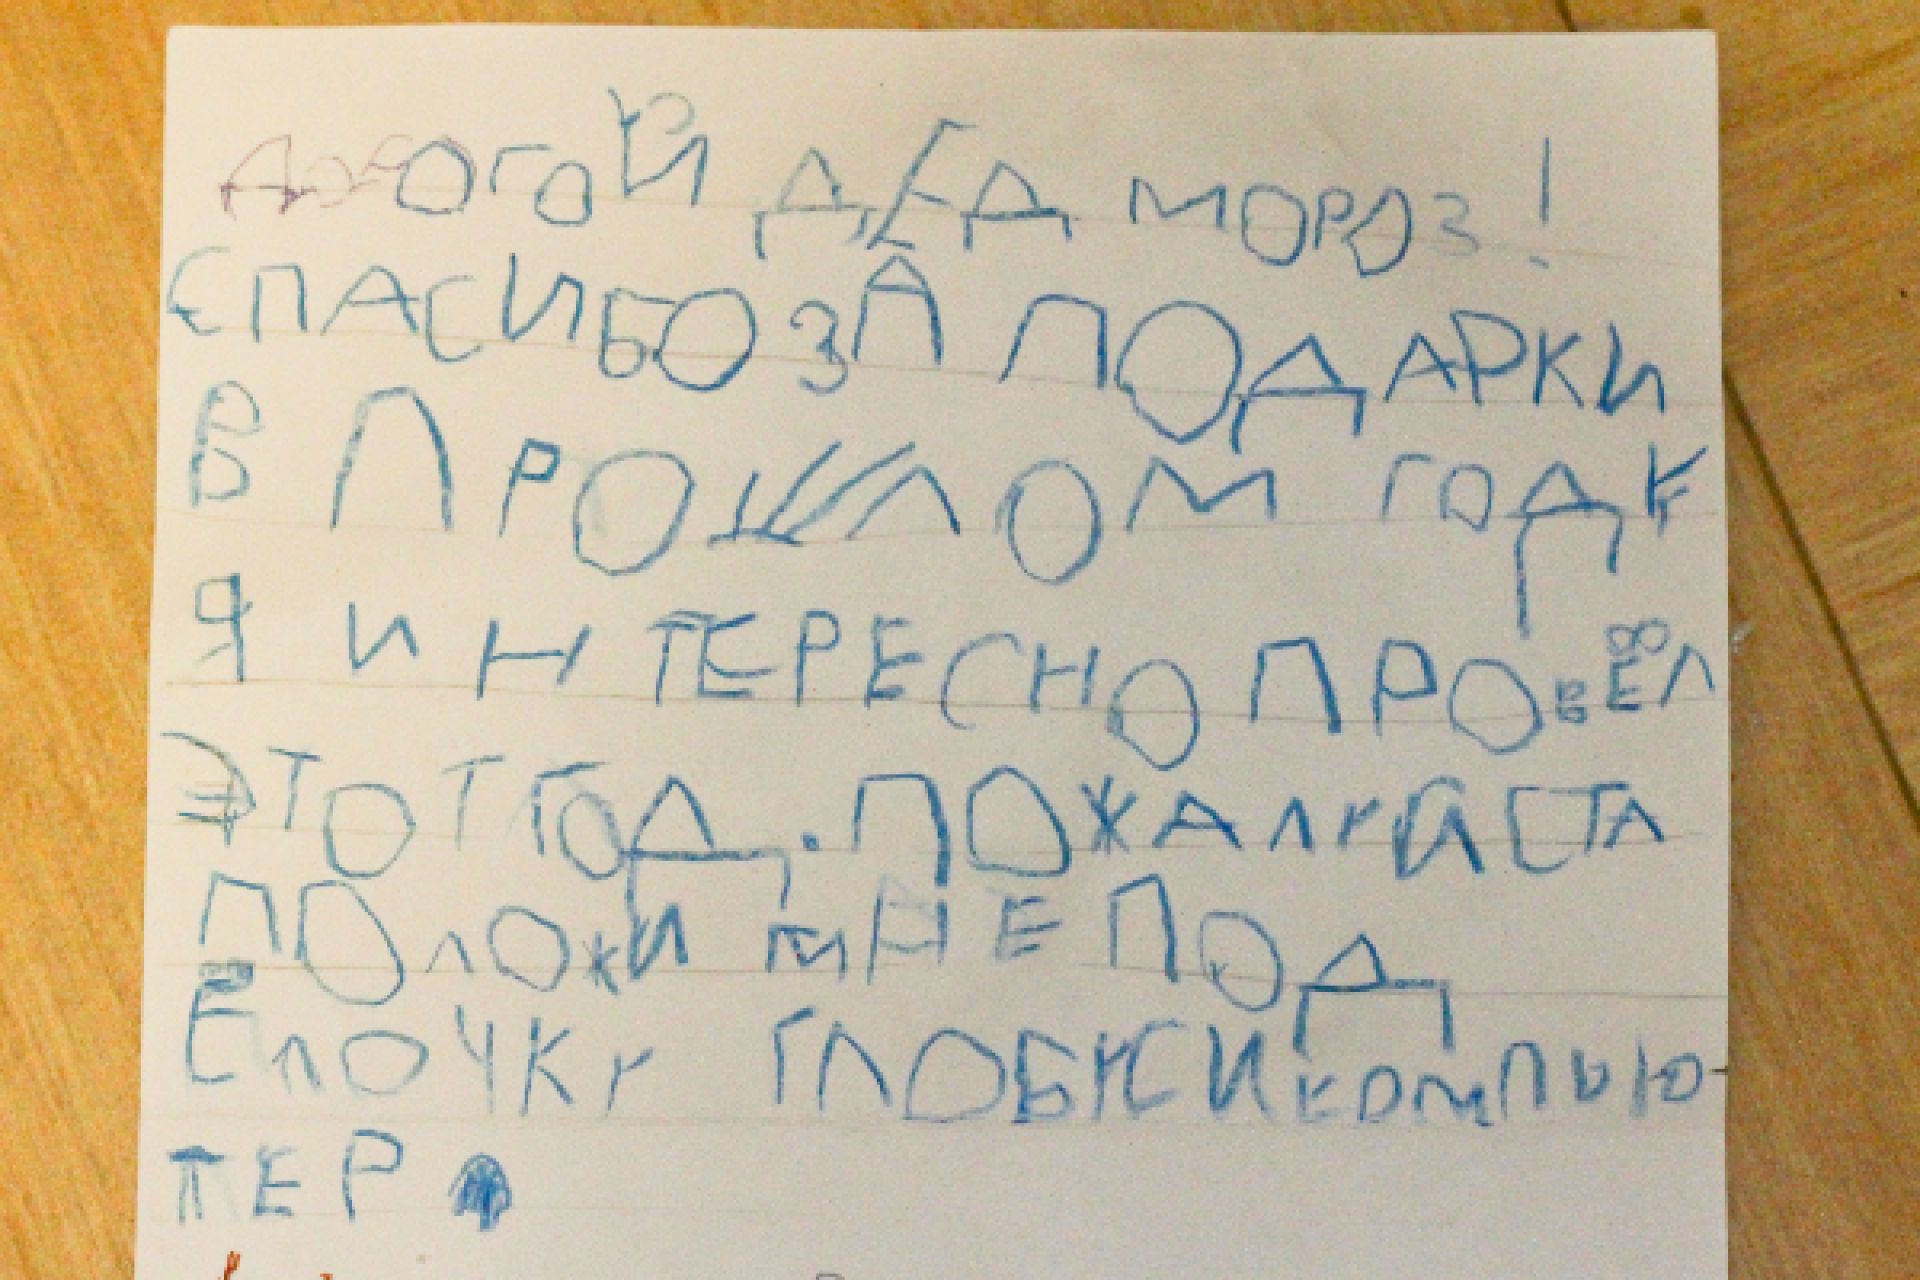 ДОРОГОЙ ДЕД МОРОЗ!
СПАСИБО ЗА ПОДАРКИ
В ПРОШЛОМ ГОДУ
Я ИНТЕРЕСНО ПРОВЁЛ
ЭТОТ ГОД. ПОЖАЛУЙСТА
ПОЛОЖИ МНЕ ПОД
ЁЛОЧКУ ГЛОБУС И КОМПЬЮ
ТЕР.